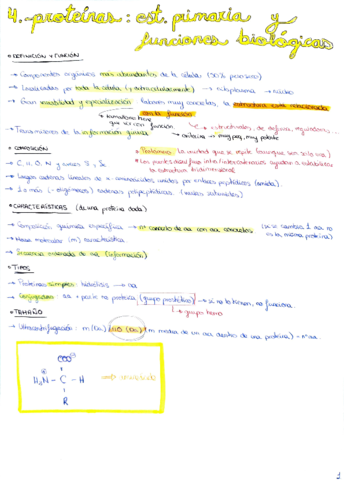 4.-proteínas: est. primaria y
funciones biológicas
• DEFINICIÓN Y FUNCIÓN
→ Componentes orgánicos más abundantes de la célula (50% peso seco)
→ Localizadas por toda la célula (y extracelularmente) → citoplasma → núcleo
→ Gran variabilidad y especialización: labores muy concretas, la estructura está relacionada
con la función
→ estructurales, de defensa, reguladoras...
→ Transmisoras de la información génica
• COMPOSICIÓN
→ C, H, O, N y a veces S, Se
* Protómero: la unidad que se repite (aunque sea solo una)
* Los puentes disulfuro intra/intercatenarios ayudan a estabilizar
la estructura tridimensional
→ Largas cadenas lineales de α-aminoácidos unidos por enlaces peptídicos (amida)
→ 1 o más (= oligómeros) cadenas polipeptídicas (varias subunidades)
• CARACTERÍSTICAS (de una proteína dada)
→ Composición química específica → nº concreto de aa con aa concretos (si se cambia 1 aa no
es la misma proteína)
→ Masa molecular (m) característica
→ Secuencia ordenada de aa (información)
• TIPOS
→ Proteínas simples: hidrólisis → aa
→ Conjugadas: aa + parte no proteica (grupo prostético) → si no lo tienen, no funciona
→ grupo hemo
• TAMAÑO
→ Ultracentrifugación: m (Da) / 110 (Da) (m media de un aa dentro de una proteína) = nº aa
COO⊖
⊕
H₃N - C - H
R
1